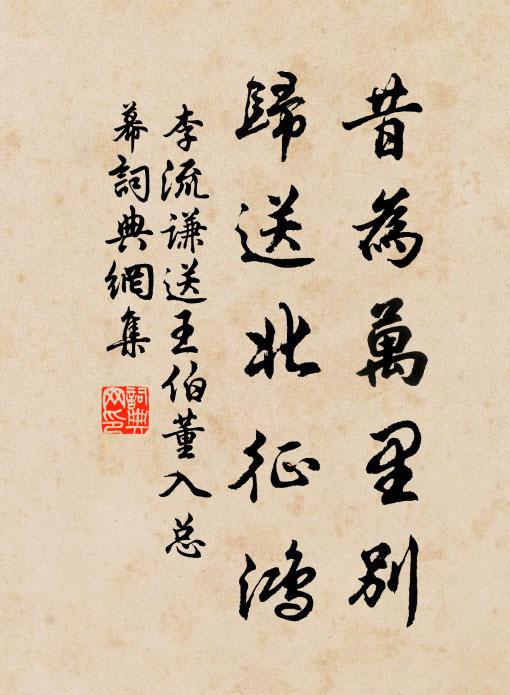 昔為萬里別
歸送北征鴻
李流謙送王伯董入总
幕詞典網集
詞典
网印